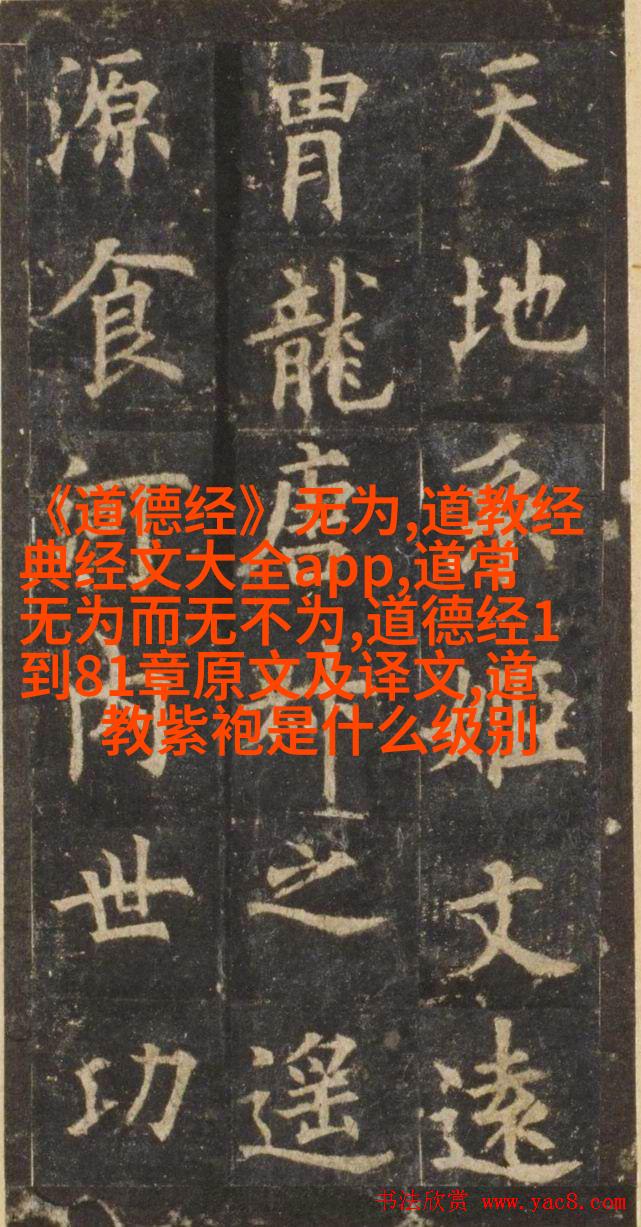 天地系姬文遠
胄龍唐之遥
源食河内世功
《道德经》无为,道教经
典经文大全app,道常
无为而无不为,道德经1
到81章原文及译文,道
教紫袍是什么级别
书法欣赏 www.yac8.com